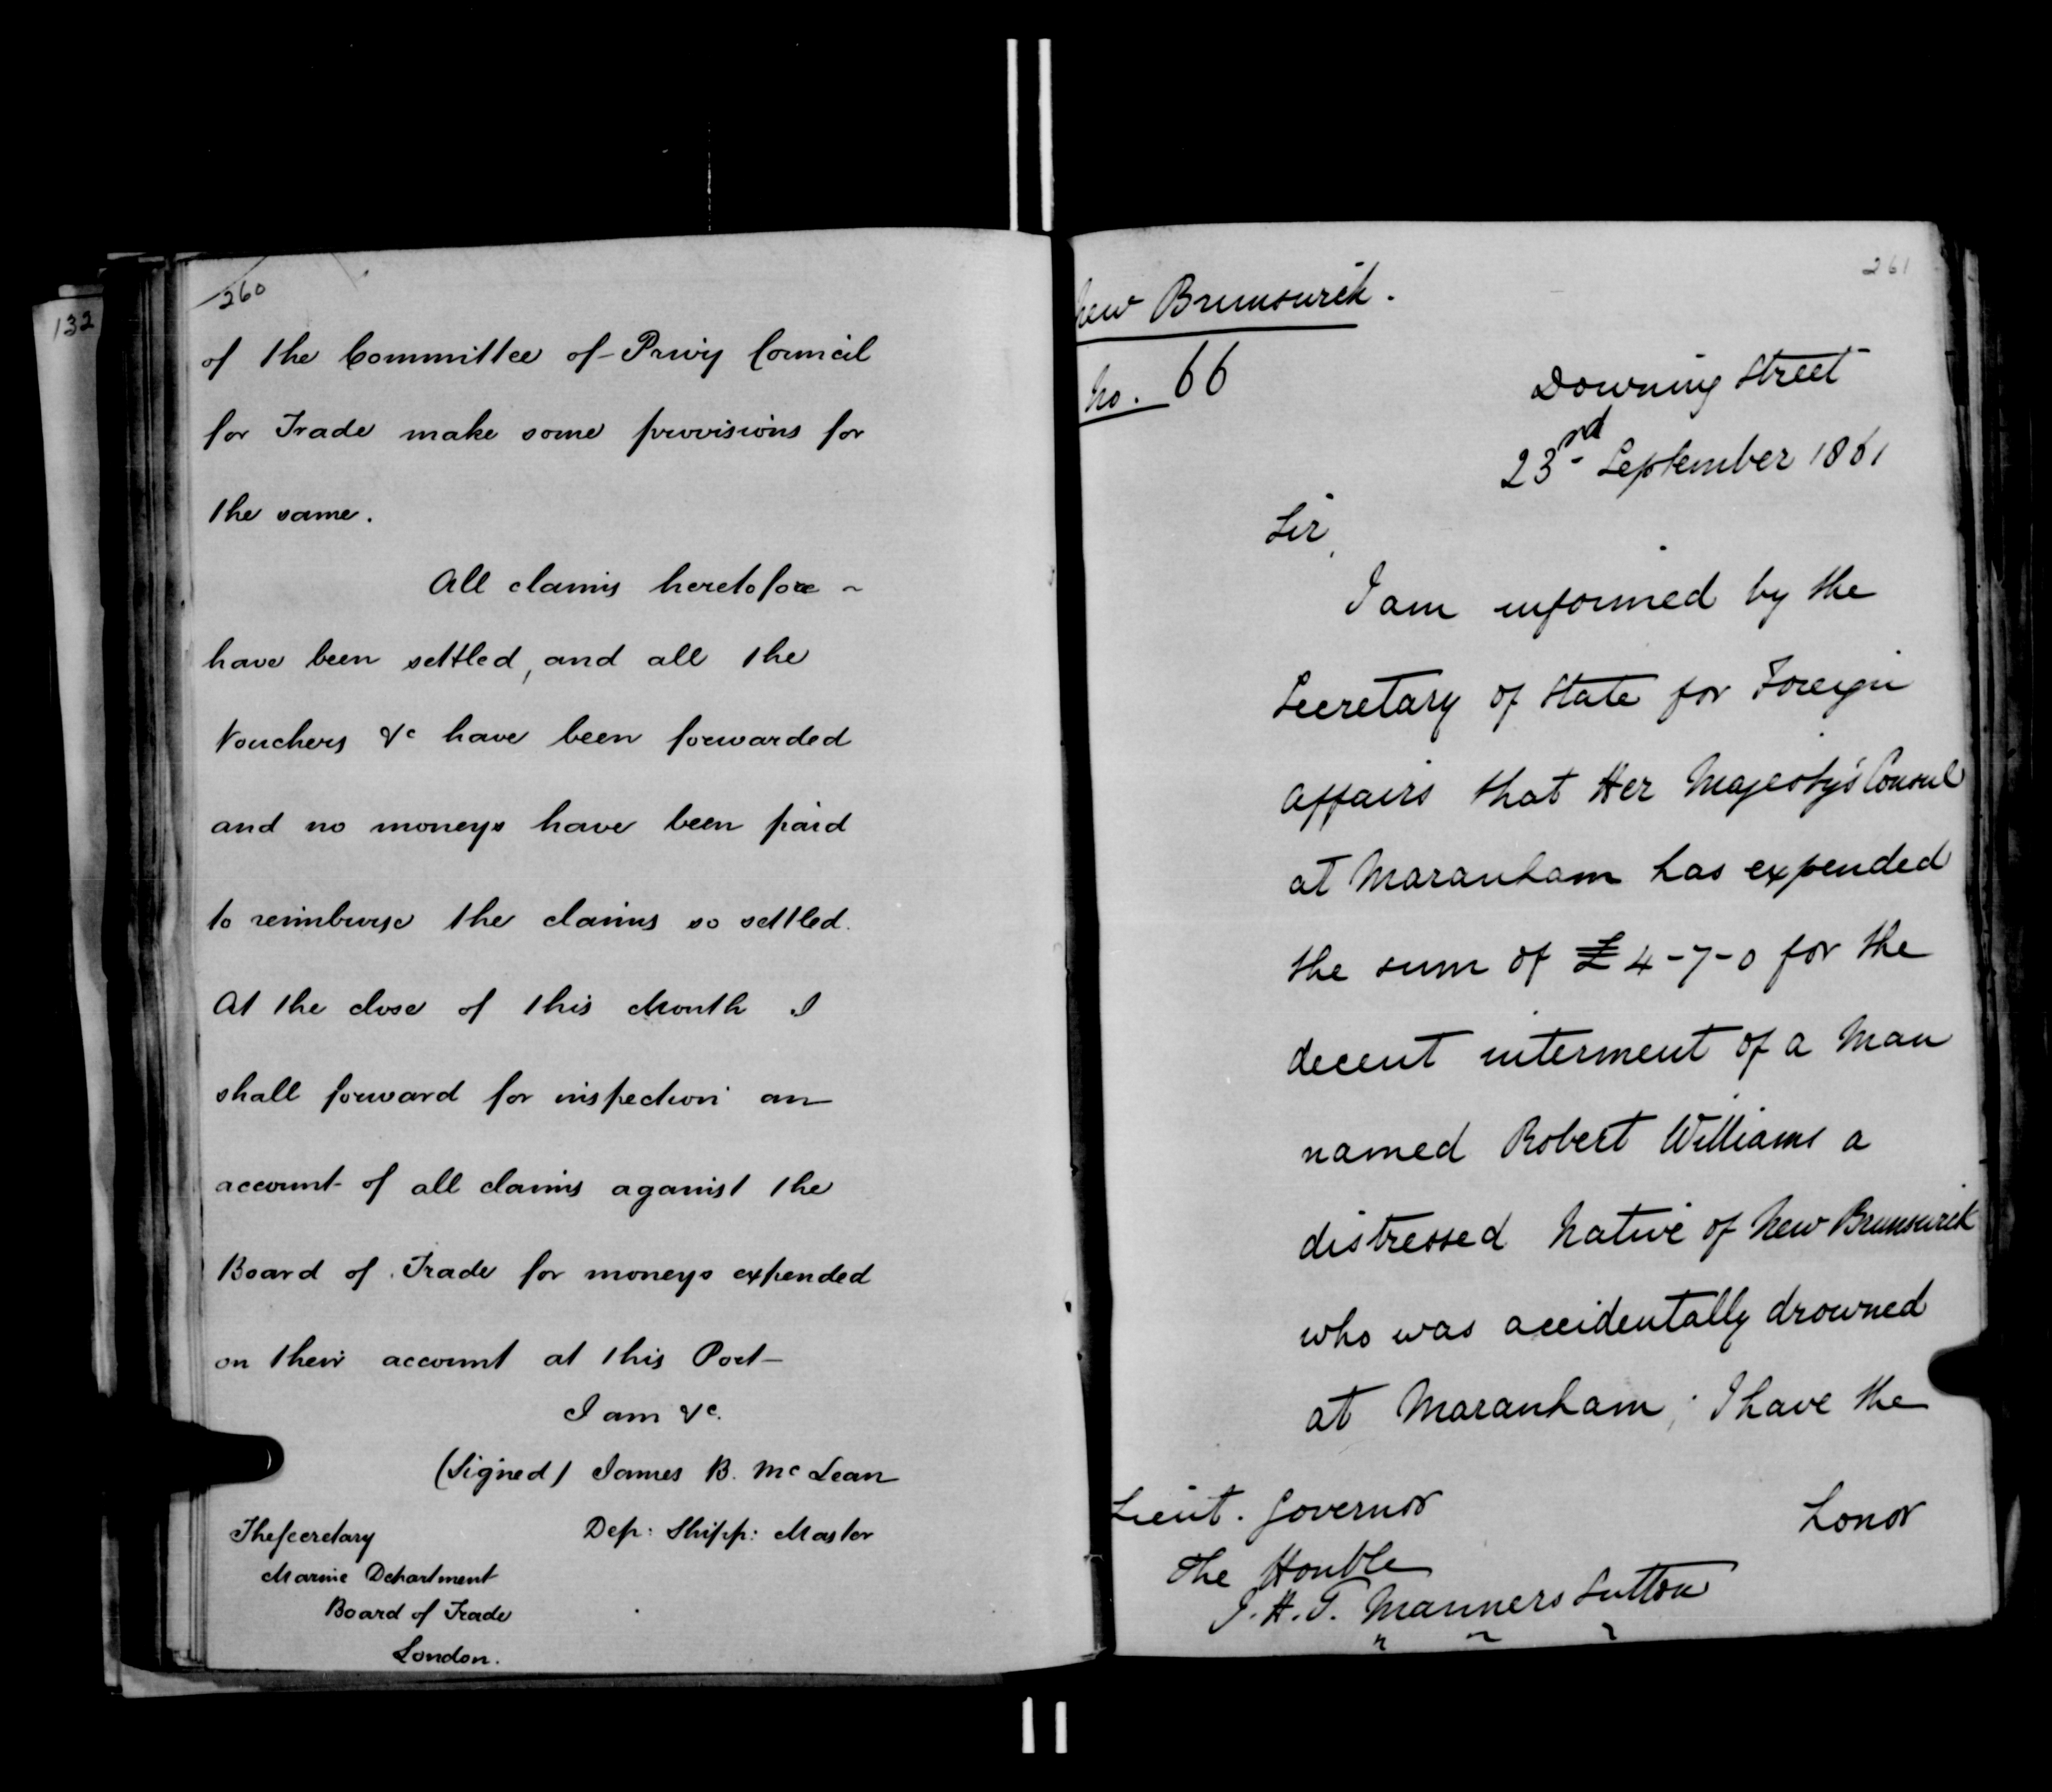 132
260
of the Committee of Privy Council
for Trade make some provisions for
the same.
All claims heretofore ~
have been settled, and all the
Vouchers &c have been forwarded
and no moneys have been paid
to reimburse the claims so settled.
At the close of this Month I
shall forward for inspection an
account of all claims against the
Board of Trade for moneys expended
on their account at this Port —
I am &c.
(Signed) James B. McLean
Dep: Shipp: Master
The Secretary
Marine Department
Board of Trade
London.
261
New Brunswick.
No. 66
Downing Street
23rd September 1861
Sir,
I am informed by the
Secretary of State for Foreign
Affairs that Her Majesty's Consul
at Maranham has expended
the sum of £4-7-0 for the
decent interment of a Man
named Robert Williams a
distressed Native of New Brunswick
who was accidentally drowned
at Maranham; I have the
honor
Lieut. Governor
The Honble
J. H. T. Manners Sutton
" " "